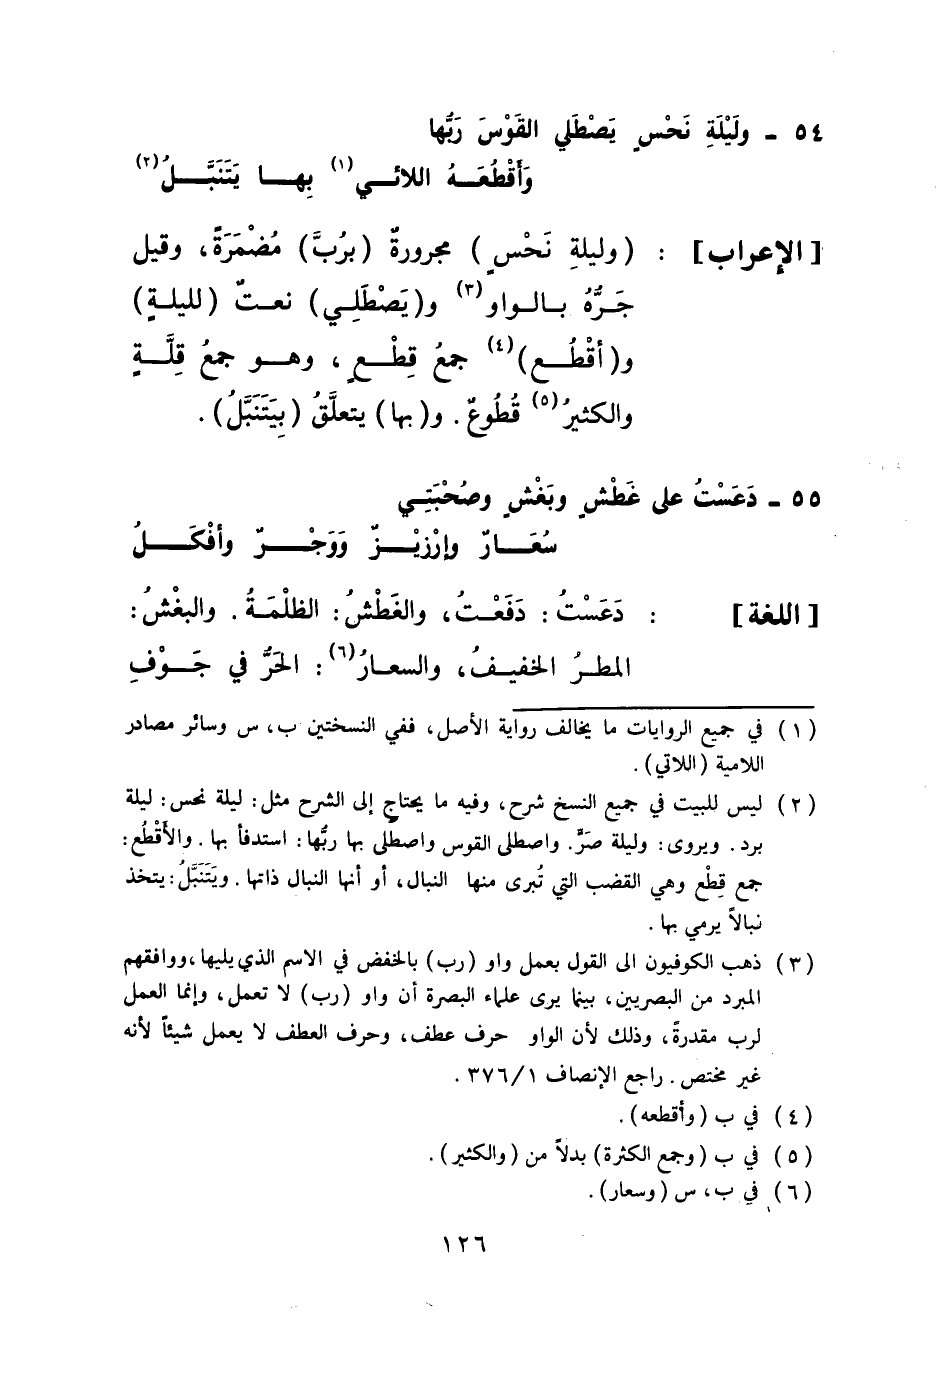 ٥٤ - ولَيْلَةِ نَحْسٍ يَصْطَلي القَوْسَ رَبُّها
وَأَقْطُعَـهُ اللائـي(١) بِهـا يَتَنَبَّـلُ(٢)
[الإعراب] : (وليلةِ نَحْسٍ) مجرورةٌ (برُبَّ) مُضْمَرَةً، وقيل
جَـرُّهُ بـالـواو(٣) و(يَصْطَلِـي) نعـتٌ (لليلـةٍ)
و(أقْطُـع)(٤) جمعُ قِطْـعٍ، وهـو جمعُ قِلَّـةٍ
والكثيرُ(٥) قُطُوعٌ. و(بها) يتعلَّقُ (بِيَتَنَبَّلُ).
٥٥ - دَعَسْتُ على غَطْشٍ وبَغْشٍ وصُحْبَتِـي
سُعَـارٌ وإرْزِيْـزٌ وَوَجْـرٌ وأفْكَـلُ
[اللغة] : دَعَسْتُ: دَفَعْـتُ، والغَطْشُ: الظلْمَـةُ. والبغْشُ:
المطـرُ الخفيـفُ، والسعـارُ(٦): الحَرُّ في جَـوْفِ
(١) في جميع الروايات ما يخالف رواية الأصل، ففي النسختين ب، س وسائر مصادر
اللامية (اللاتي).
(٢) ليس للبيت في جميع النسخ شرح، وفيه ما يحتاج إلى الشرح مثل: ليلة نحس: ليلة
برد. ويروى: وليلة صَرٍّ. واصطلى القوس واصطلى بها ربُّها: استدفأ بها. والأقْطُع:
جمع قِطْع وهي القضب التي تُبرى منها النبال، أو أنها النبال ذاتها. ويَتَنَبَّلُ: يتخذ
نبالاً يرمي بها.
(٣) ذهب الكوفيون الى القول بعمل واو (رب) بالخفض في الاسم الذي يليها، ووافقهم
المبرد من البصريين، بينما يرى علماء البصرة أن واو (رب) لا تعمل، وإنما العمل
لرب مقدرةً، وذلك لأن الواو حرف عطف، وحرف العطف لا يعمل شيئاً لأنه
غير مختص. راجع الإنصاف ٣٧٦/١.
(٤) في ب (وأقطعه).
(٥) في ب (وجمع الكثرة) بدلاً من (والكثير).
(٦) في ب، س (وسعار).
١٢٦